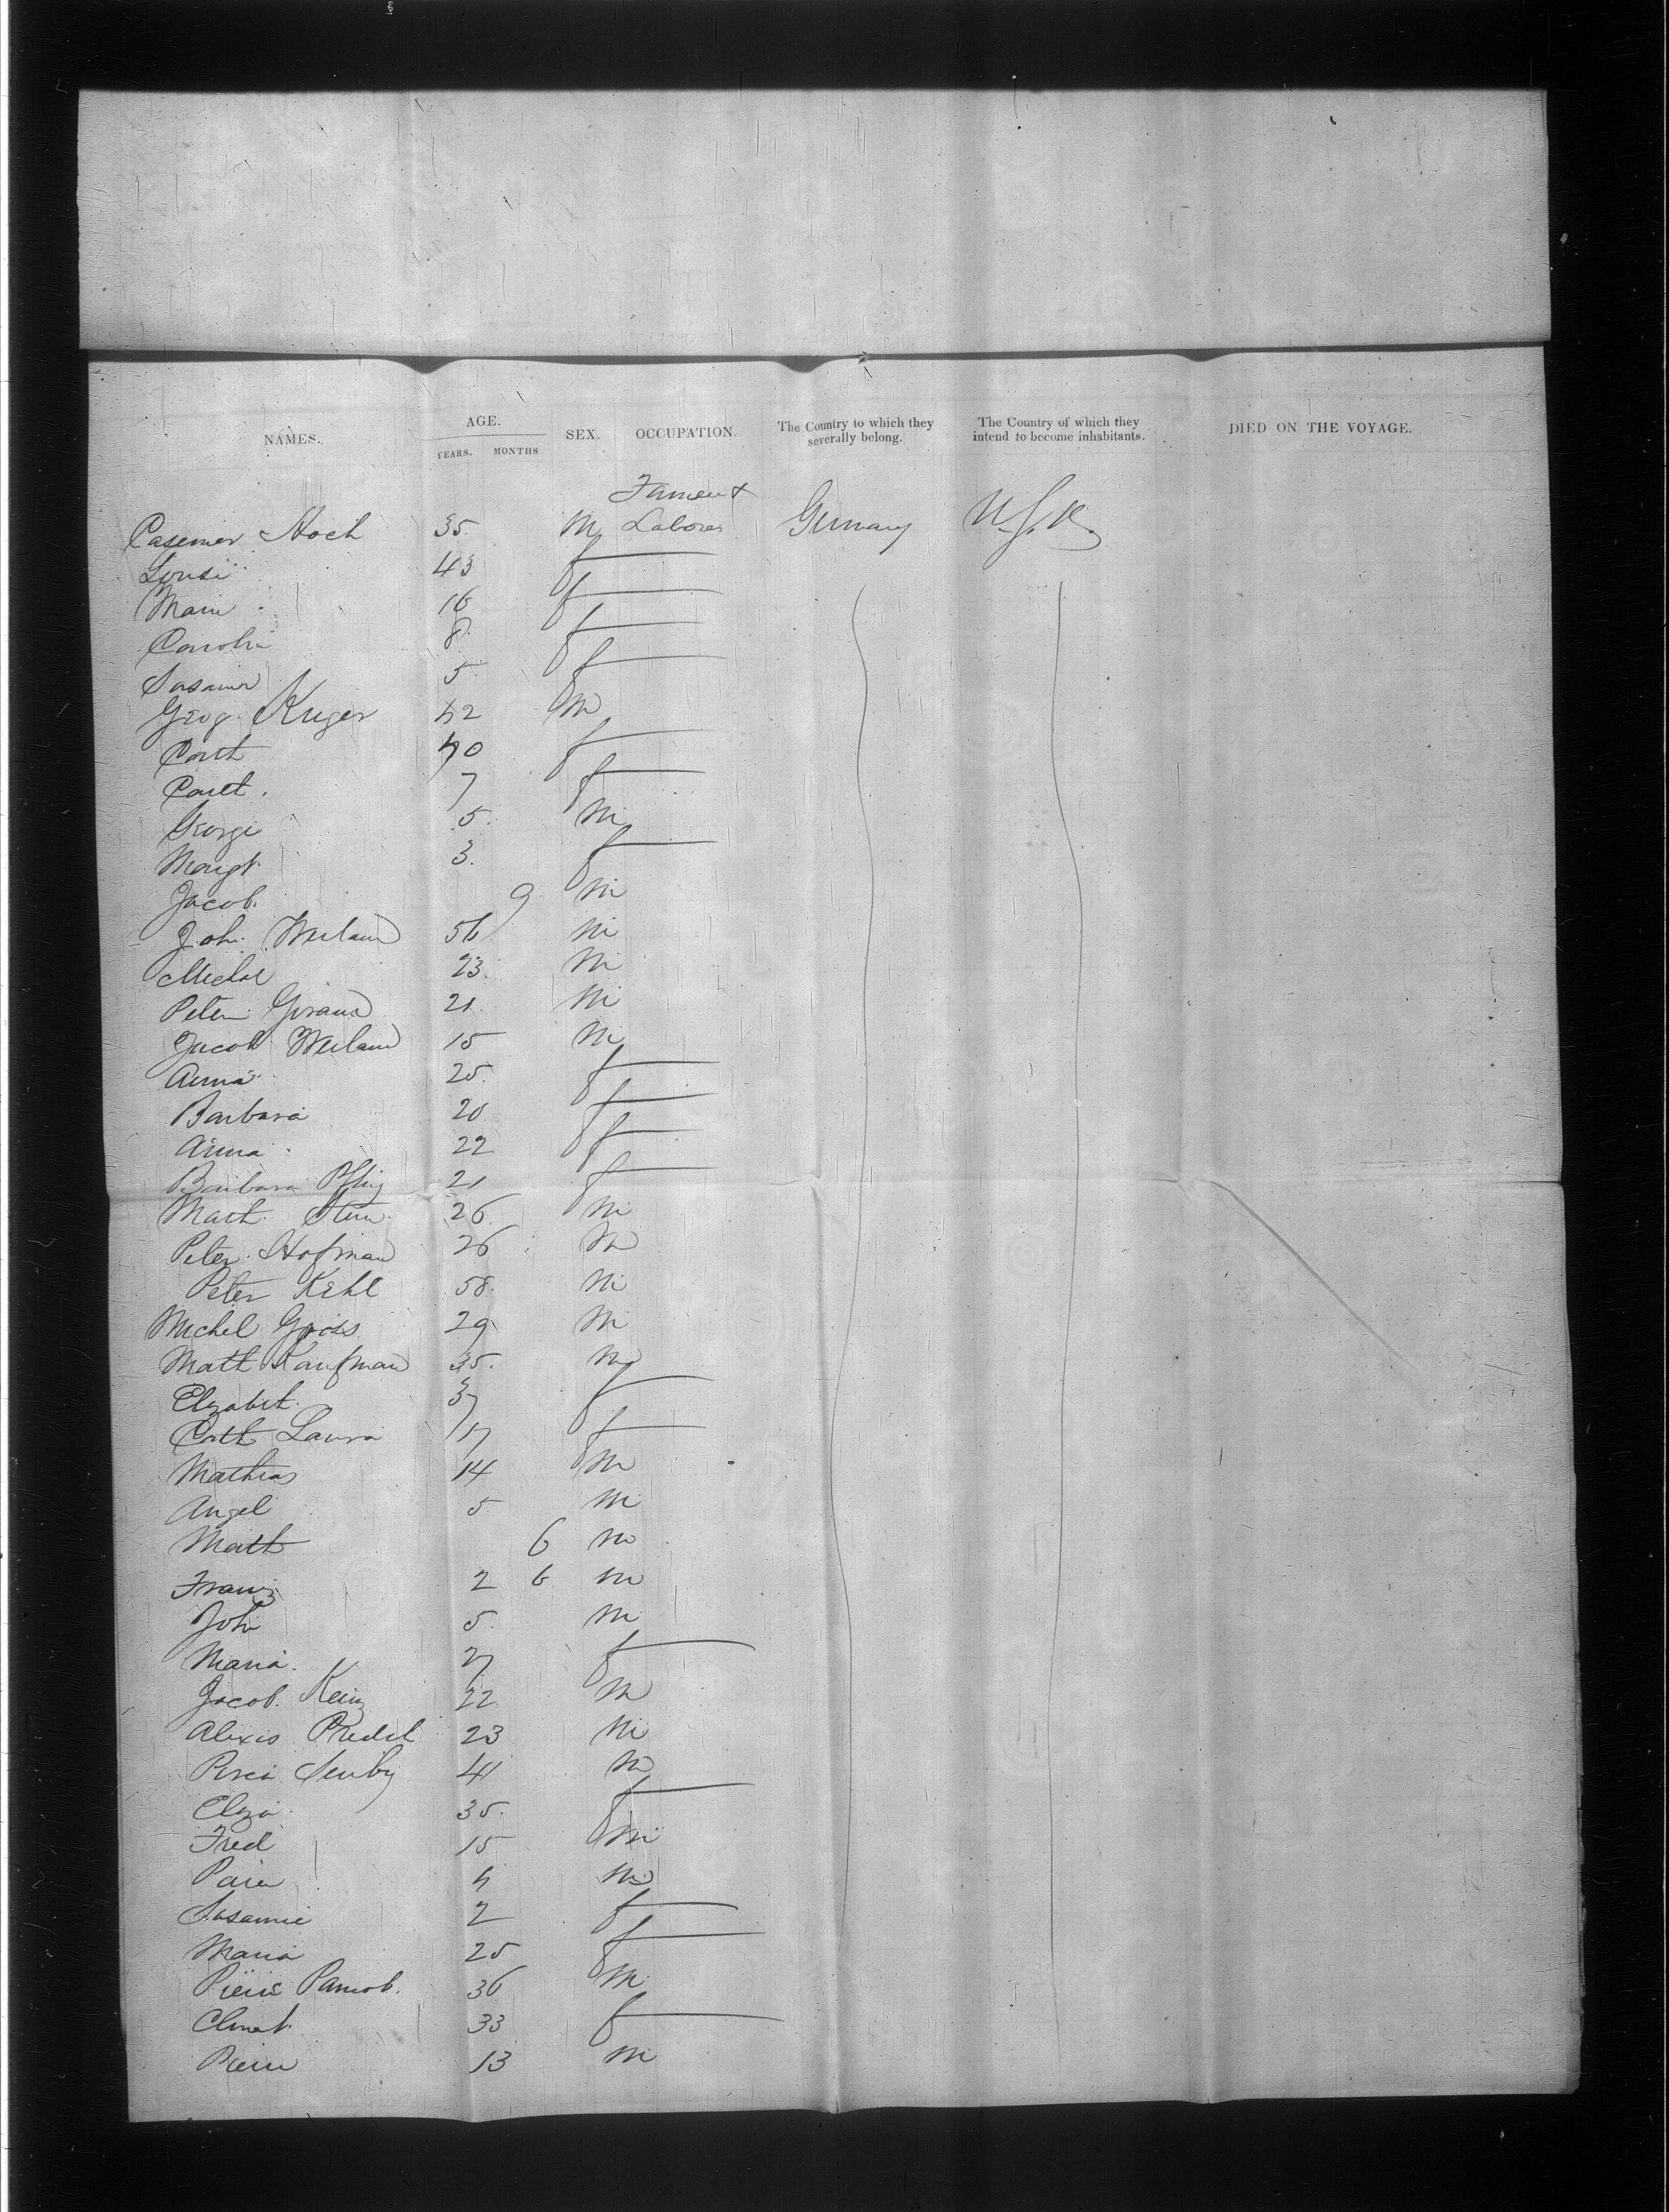 NAMES. AGE. YEARS. MONTHS SEX. OCCUPATION. The Country to which they severally belong. The Country of which they intend to become inhabitants. DIED ON THE VOYAGE.
Casemer Hoch 35 M Labores Germany
Lousi 43 f
Marie 16 f
Carolin 8 f
5 f
Geog. Kruger 42 m
40 f
7 f
George 5 m
Margt. 3 f
Jacob. 9 m
Joh. Weiland 56 m
Michel 23 m
Peter 21 m
Jacob Weiland 15 m
Anna 25 f
Barbara 20 f
Anna 22 f
Barbara 21 f
Math. Stein 26 m
Peter Hofman 26 m
Peter Kehl 58 m
Michel Gross 29 m
Matt Kaufman 35 m
Elizabet. 37 f
Cath Laura 17 f
Mathias 14 m
Angel 5 m
Matt 6 m
Franz 2 6 m
Joh 5 m
Maria. 27 f
Jacob. 22 m
Alexis 23 m
41 m
Eliza 35 f
Fred 15 m
4 m
Susanne 2 f
Maria 25 f
Pierre 36 m
33 f
Pierre 13 m